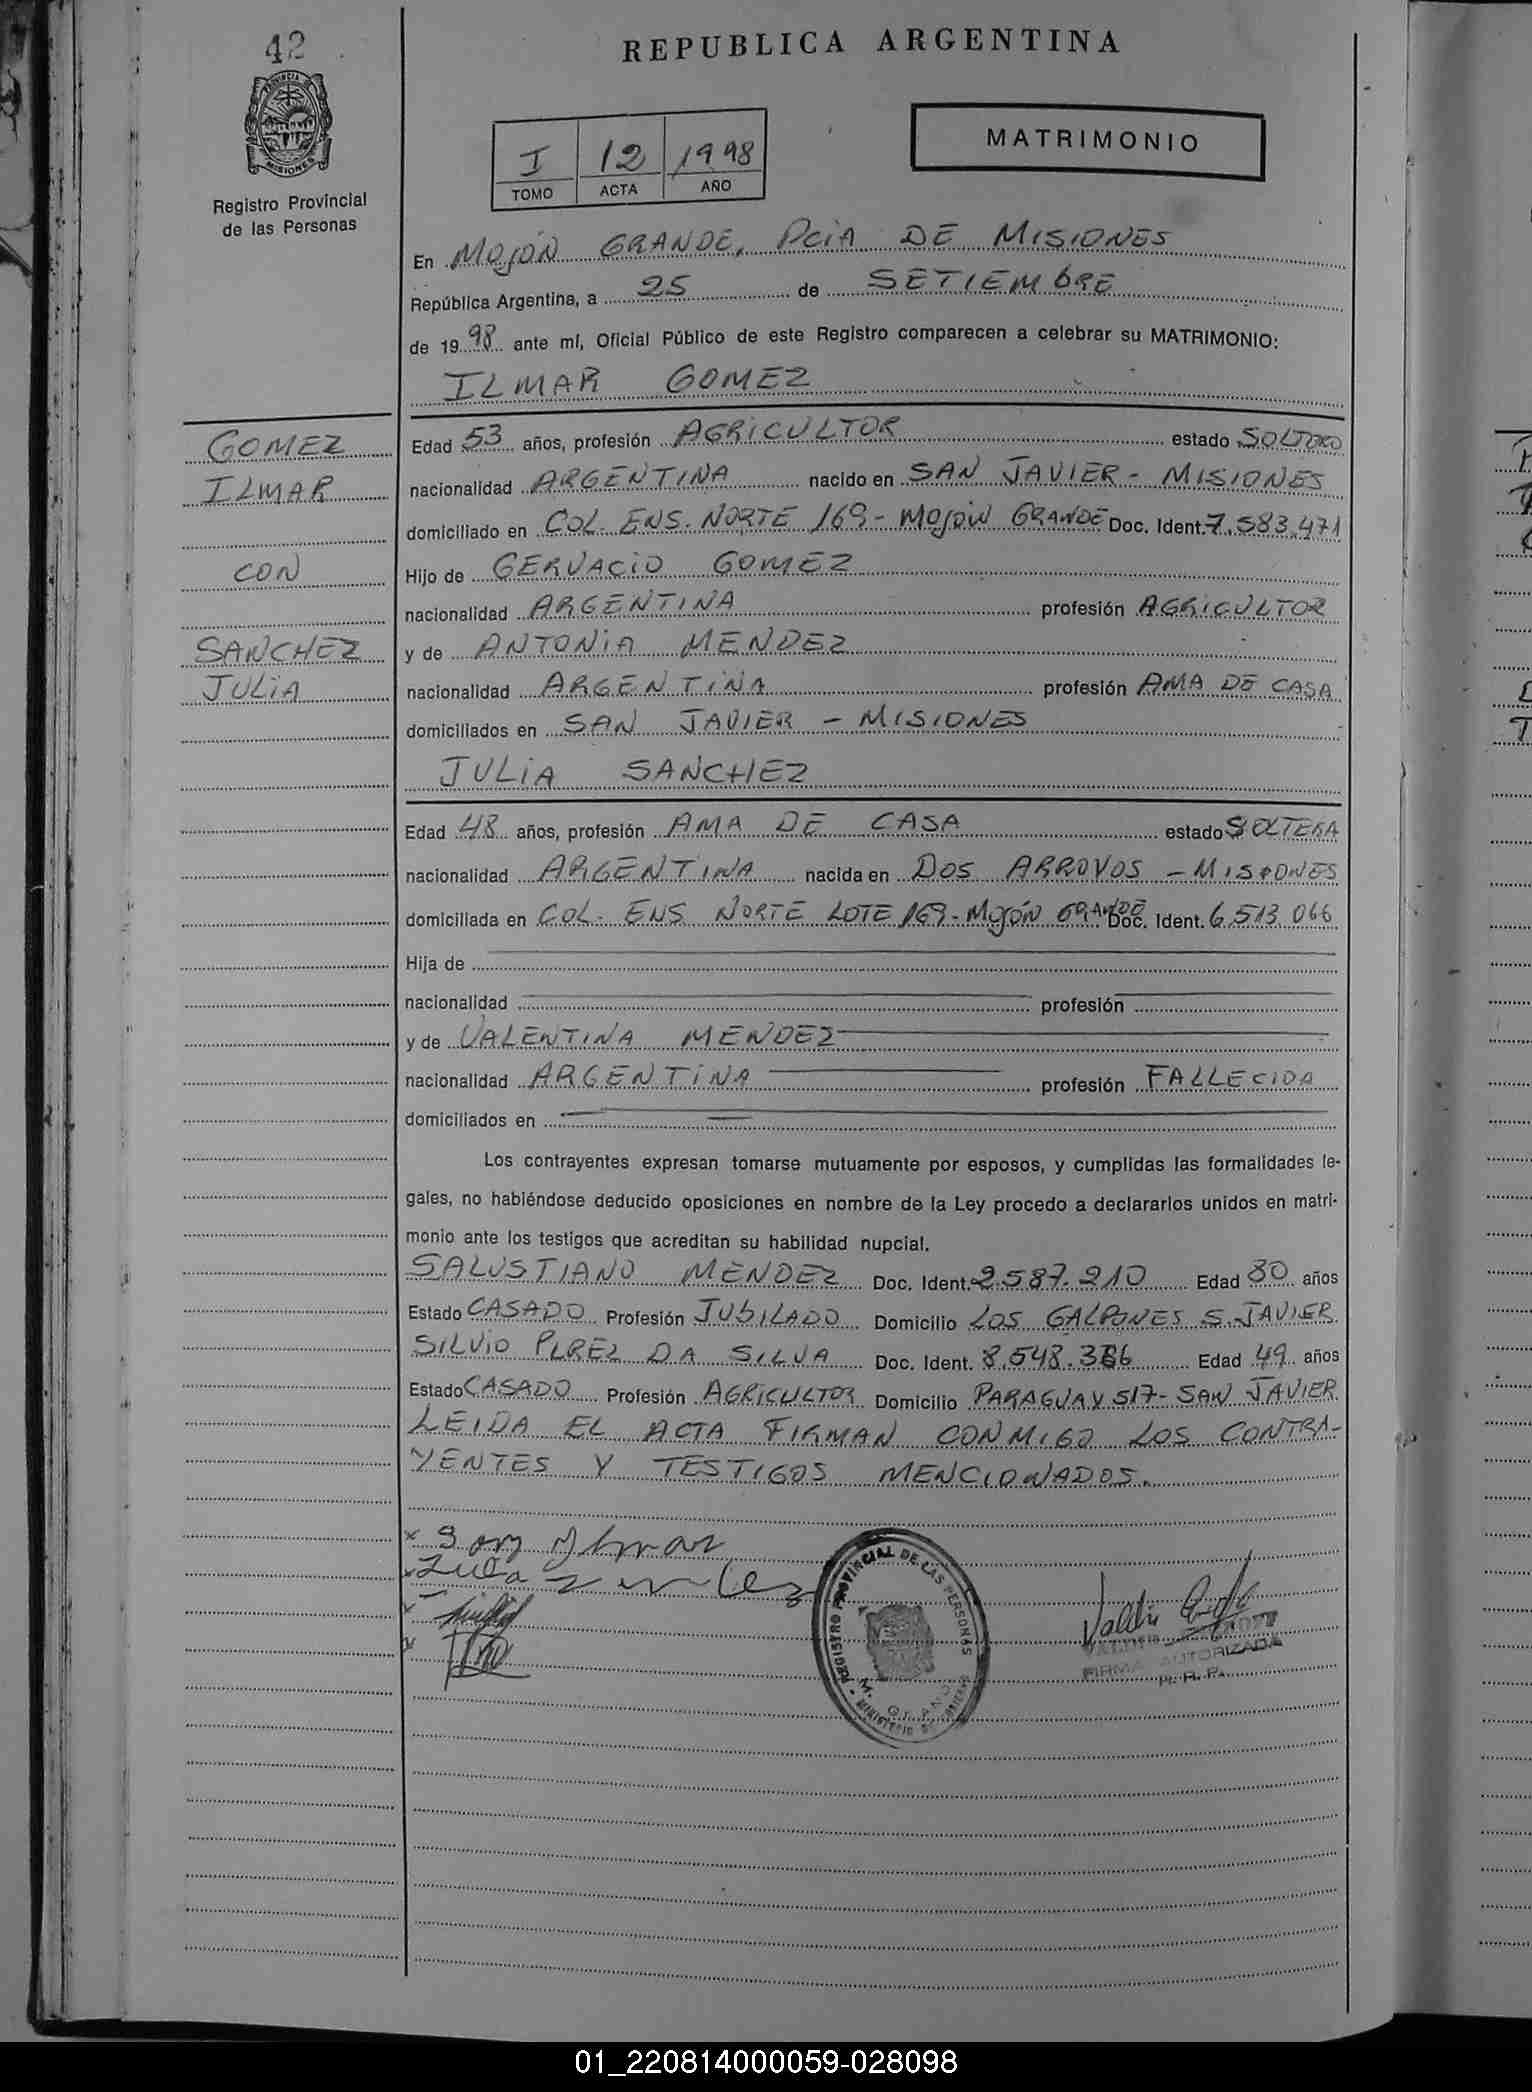 42
REPUBLICA ARGENTINA
PROVINCIA DE
MISIONES
Registro Provincial
de las Personas
I 12 1998
TOMO ACTA AÑO
MATRIMONIO
En MOJÓN GRANDE, PciA DE MISIONES
República Argentina, a 25 de SETIEMbRE
de 1998 ante mí, Oficial Público de este Registro comparecen a celebrar su MATRIMONIO:
ILMAR GOMEZ
GOMEZ
ILMAR
CON
SANCHEZ
JULiA
Edad 53 años, profesión AGRICULTOR estado SOLTERO
nacionalidad ARGENTINA nacido en SAN JAVIER - MISIONES
domiciliado en COL. ENS. NORTE 169 - MOJÓN GRANDE Doc. Ident. 7.583.471
Hijo de GERVACIO GOMEZ
nacionalidad ARGENTINA profesión AGRICULTOR
y de ANTONiA MENDEZ
nacionalidad ARGENTINA profesión AMA DE CASA
domiciliados en SAN JAVIER - MISIONES
JULiA SANCHEZ
Edad 48 años, profesión AMA DE CASA estado SOLTERA
nacionalidad ARGENTINA nacida en DOS ARROYOS - MISIONES
domiciliada en COL. ENS NORTE LOTE 169 - MOJÓN GRANDE Doc. Ident. 6.513.066
Hija de
nacionalidad profesión
y de VALENTINA MENDEZ
nacionalidad ARGENTINA profesión FALLECIDA
domiciliados en
Los contrayentes expresan tomarse mutuamente por esposos, y cumplidas las formalidades le-
gales, no habiéndose deducido oposiciones en nombre de la Ley procedo a declararlos unidos en matri-
monio ante los testigos que acreditan su habilidad nupcial.
SALUSTIANO MENDEZ Doc. Ident. 2.587.210 Edad 80 años
Estado CASADO Profesión JUbILADO Domicilio LOS GALPONES S. JAVIER
SILVIO PEREZ DA SILVA Doc. Ident. 8.548.386 Edad 49 años
Estado CASADO Profesión AGRICULTOR Domicilio PARAGUAY 517 - SAN JAVIER
LEIDA EL ACTA FIRMAN CONMIGO LOS CONTRA-
YENTES Y TESTIGOS MENCIONADOS.
REGISTRO PROVINCIAL DE LAS PERSONAS
MINISTERIO DE GOBIERNO
FIRMA AUTORIZADA
R. P. P.
01_220814000059-028098